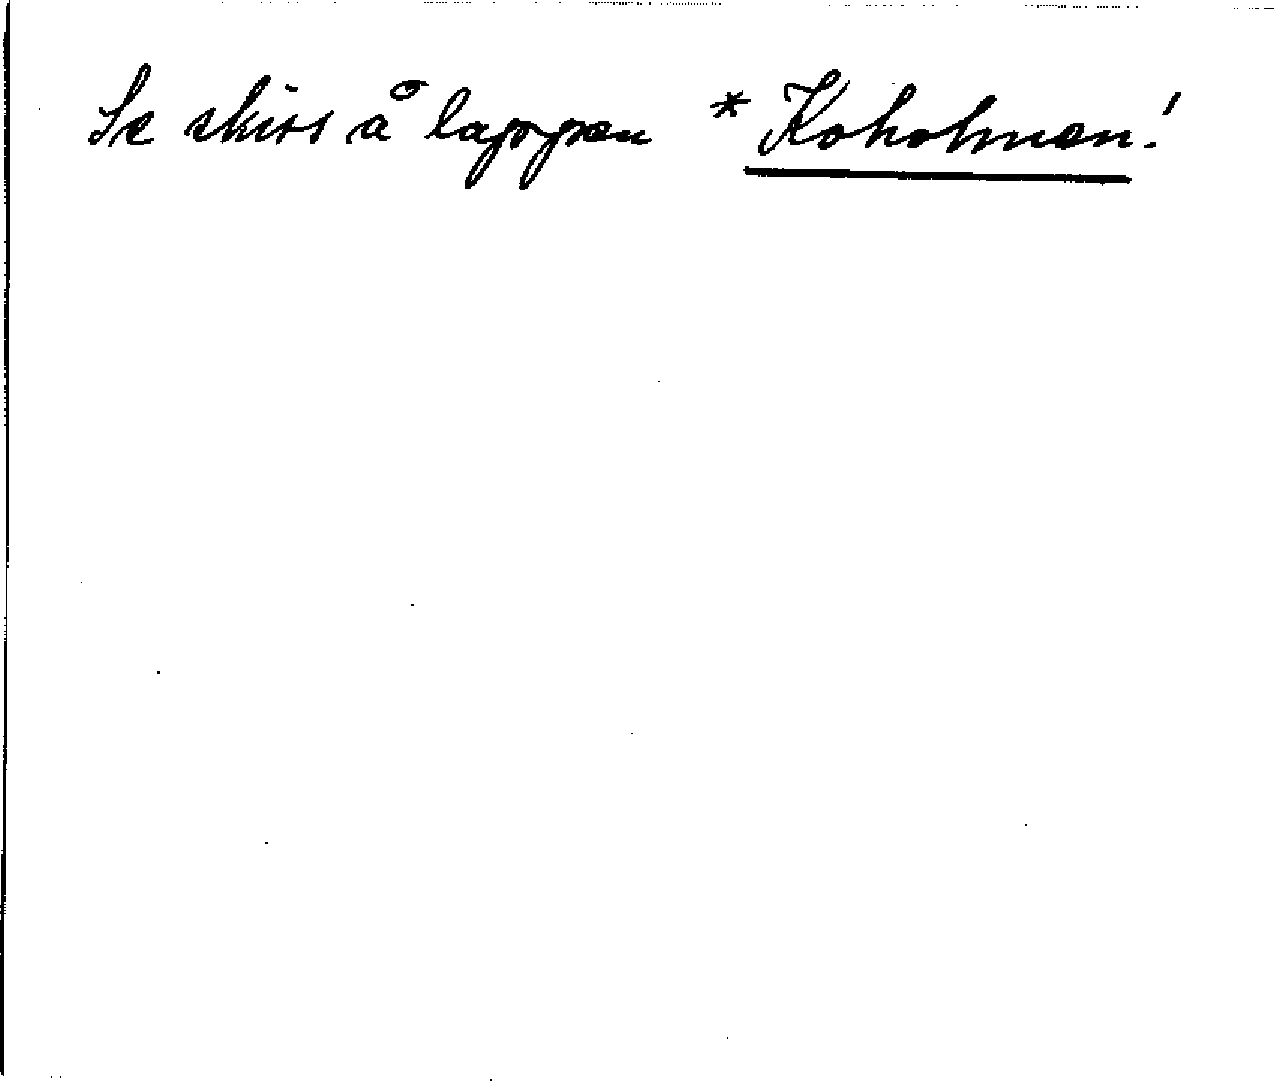 Se skiss å lappen *Koholmen!